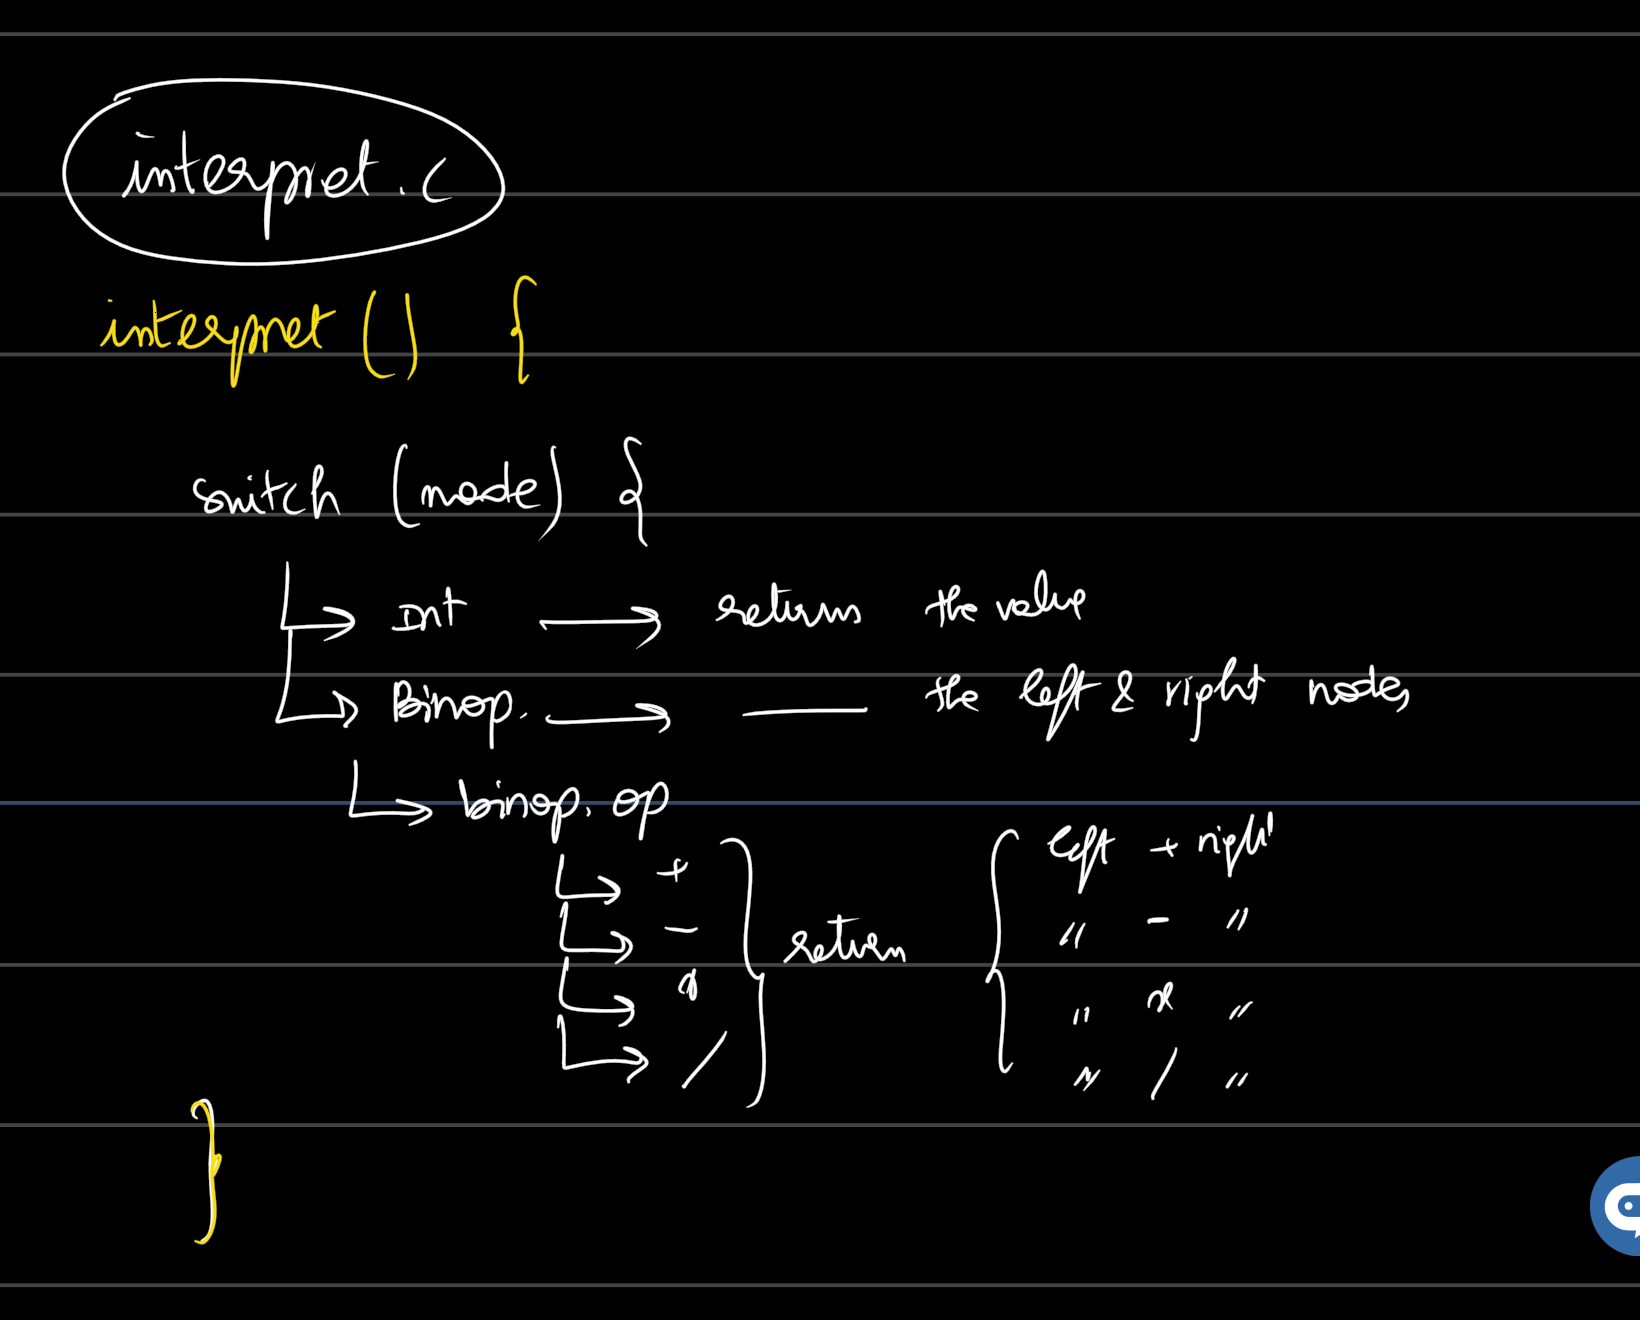 interpret.c
interpret () {
switch (node) {
Int → returns the value
Binop. → —— the left & right nodes
binop.op
+
-
*
/
} return {
left + right
" - "
" * "
" / "
}